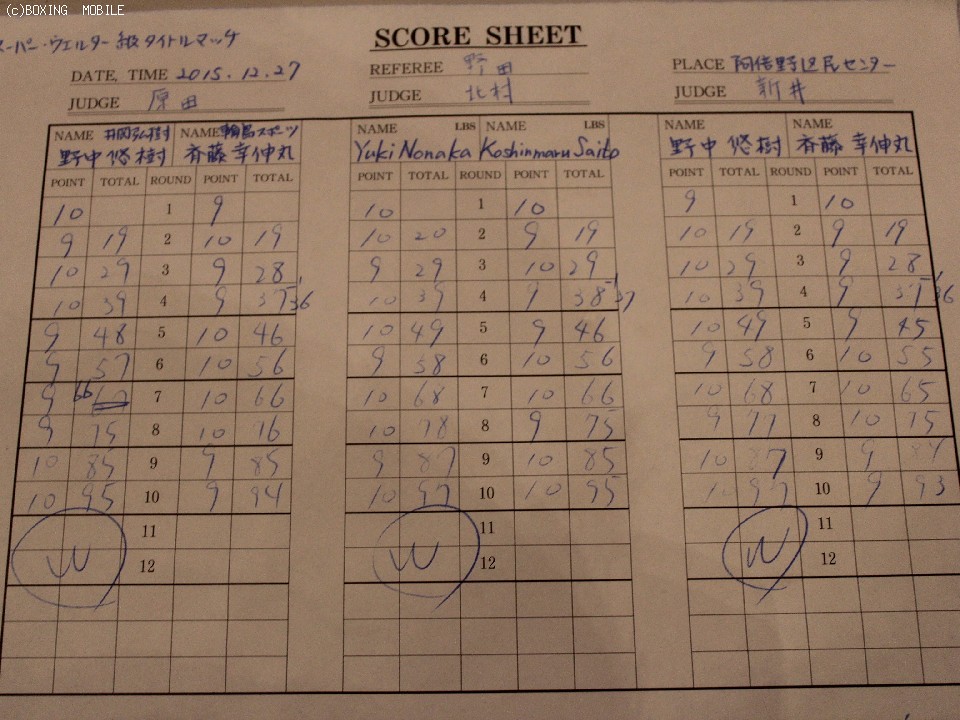 (c)BOXING MOBILE
スーパー・ウェルター級タイトルマッチ
SCORE SHEET
DATE, TIME 2015.12.27 REFEREE 野田 PLACE 阿倍野区民センター
JUDGE 原田 JUDGE 北村 JUDGE 新井
NAME 井岡弘樹 NAME 輪島スポーツ NAME LBS NAME LBS NAME NAME
野中悠樹 斉藤幸伸丸 Yuki Nonaka Koshinmaru Saito 野中悠樹 斉藤幸伸丸
POINT TOTAL ROUND POINT TOTAL POINT TOTAL ROUND POINT TOTAL POINT TOTAL ROUND POINT TOTAL
10 1 9 10 1 10 9 1 10
9 19 2 10 19 10 20 2 9 19 10 19 2 9 19
10 29 3 9 28 9 29 3 10 29 10 29 3 9 28
10 39 4 9 37 -1 36 10 39 4 9 38 -1 37 10 39 4 9 37 -1 36
9 48 5 10 46 10 49 5 9 46 10 49 5 9 45
9 57 6 10 56 9 58 6 10 56 9 58 6 10 55
9 66 7 10 66 10 68 7 10 66 10 68 7 10 65
9 75 8 10 76 10 78 8 9 75 9 77 8 10 75
10 85 9 9 85 9 87 9 10 85 10 87 9 9 84
10 95 10 9 94 10 97 10 10 95 10 97 10 9 93
11 11 11
W 12 W 12 W 12